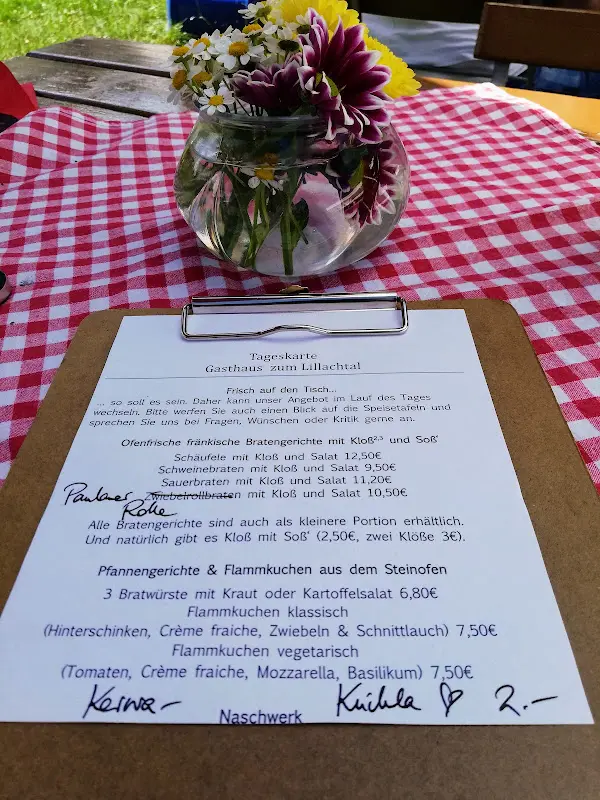 Tageskarte
Gasthaus zum Lillachtal
Frisch auf den Tisch...
... so soll es sein. Daher kann unser Angebot im Lauf des Tages
wechseln. Bitte werfen Sie auch einen Blick auf die Speisetafeln und
sprechen Sie uns bei Fragen, Wünschen oder Kritik gerne an.
Ofenfrische fränkische Bratengerichte mit Kloß²,³ und Soß⁴
Schäufele mit Kloß und Salat 12,50€
Schweinebraten mit Kloß und Salat 9,50€
Sauerbraten mit Kloß und Salat 11,20€
Zwiebelrollbraten mit Kloß und Salat 10,50€
Alle Bratengerichte sind auch als kleinere Portion erhältlich.
Und natürlich gibt es Kloß mit Soß⁴ (2,50€, zwei Klöße 3€).
Pfannengerichte & Flammkuchen aus dem Steinofen
3 Bratwürste mit Kraut oder Kartoffelsalat 6,80€
Flammkuchen klassisch
(Hinterschinken, Crème fraiche, Zwiebeln & Schnittlauch) 7,50€
Flammkuchen vegetarisch
(Tomaten, Crème fraiche, Mozzarella, Basilikum) 7,50€
Kerwa- Küchla ♡ 2.-
Naschwerk